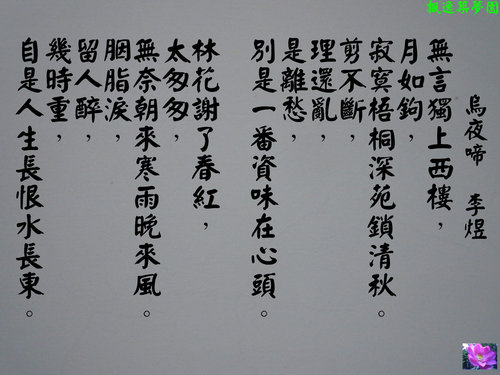 烏夜啼 李煜
無言獨上西樓，
月如鉤，
寂寞梧桐深苑鎖清秋。
剪不斷，
理還亂，
是離愁，
別是一番資味在心頭。
林花謝了春紅，
太匆匆，
無奈朝來寒雨晚來風。
胭脂淚，
留人醉，
幾時重，
自是人生長恨水長東。